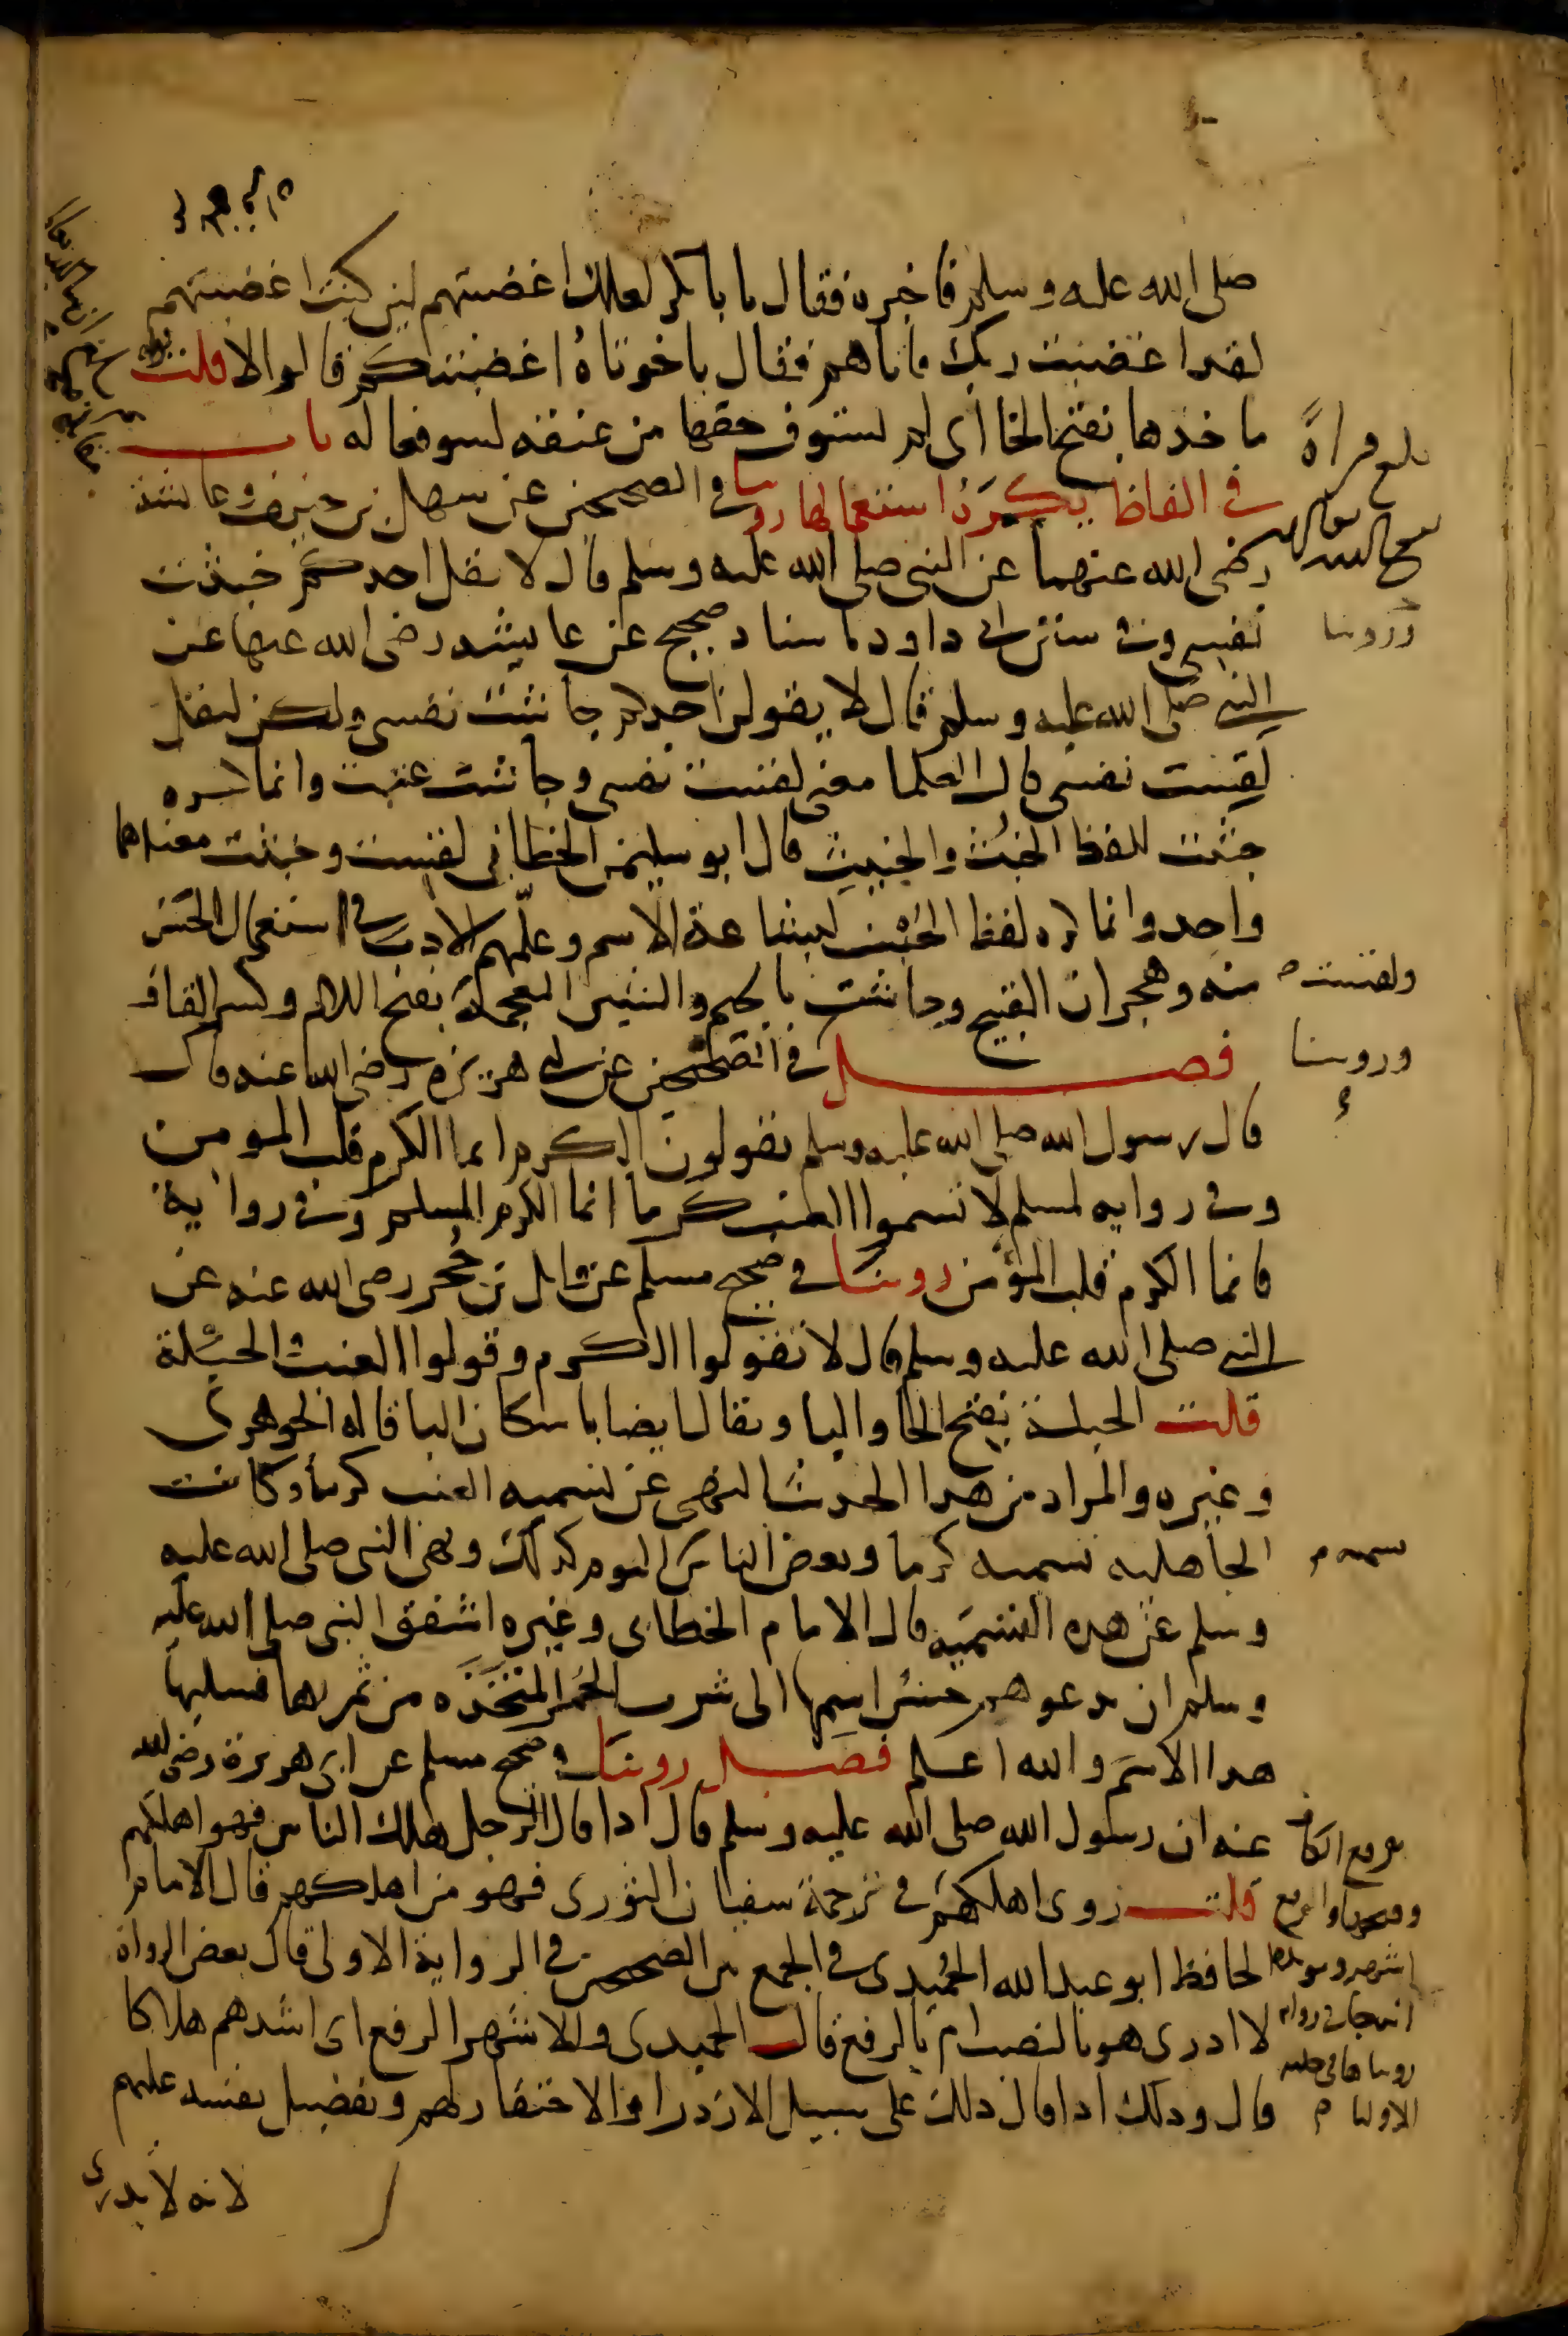 صلى الله عليه وسلم فاخبره فقال يا با بكر لعلك اغضبتهم لين كنت اغضبتهم
لقد اغضبت ربك فاتاهم فقال ياخوتاه اغضبتكم قالوا لا قلت قوله
ماخذها بفتح الخا اى لم تستوف حقها من عنقه لسو فعاله باب
في الفاظ يكره استعمالها روينا في الصحيحين عن سهل بن حنيف وعايشة
رضى الله عنهما عن النبي صلى الله عليه وسلم قال لا يقل احدكم خبثت
نفسي وفي سنن ابى داود باسناد صحيح عن عايشه رضى الله عنها عن
النبي صلى الله عليه وسلم قال لا يقولن احدكم جاشت نفسي ولكن ليقل
لقست نفسي قال العلما معنى لقست نفسي وجاشت غثت وانما كره
خبثت للفظ الخبث والخبيث قال ابو سليمن الخطابي لقست وخبثت معناهما
واحد وانما كره لفظ الخبث لبشاعة الاسم وعلمهم الادب في استعمال الحسن
منه وهجران القبيح وجاشت بالجيم والشين المعجمة بفتح اللام وكسر القاف
فصل في الصحيحين عن ابى هريره رضى الله عنه قال
قال رسول الله صلى الله عليه وسلم يقولون الكرم انما الكرم قلب المومن
وفي روايه لمسلم لا تسموا العنب كرما انما الكرم المسلم وفي رواية
فانما الكرم قلب المؤمن روينا في صحيح مسلم عن وائل بن حجر رضى الله عنه عن
النبي صلى الله عليه وسلم قال لا تقولوا الكرم وقولوا العنب والحبلة
قلت الحبلة بفتح الحا والبا ويقال ايضا باسكان البا قاله الجوهرى
وغيره والمراد من هذا الحديث النهى عن تسميه العنب كرما وكانت
الجاهليه تسميه كرما وبعض الناس اليوم كذلك ونهى النبي صلى الله عليه
وسلم عن هذه التسميه قال الامام الخطابى وغيره اشفق النبي صلى الله عليه
وسلم ان يدعوهم حسن اسمها الى شرب الخمر المتخذه من ثمرها فسلبها
هذا الاسم والله اعلم فصل روينا في صحيح مسلم عن ابى هريرة رضى الله
عنه ان رسول الله صلى الله عليه وسلم قال اذا قال الرجل هلك الناس فهو اهلكهم
قلت روى اهلكهم في ترجمة سفيان الثورى فهو من اهلكهم قال الامام
الحافظ ابو عبد الله الحميدى في الجمع بين الصحيحين في الرواية الاولى قال بعض الرواة
لا ادرى هو بالنصب ام بالرفع قال الحميدى والاشهر الرفع اى اشدهم هلاكا
قال وذلك اذا قال ذلك على سبيل الازدرا والاحتقار لهم وتفضيل نفسه عليهم
لانه لا يدرى
بلغ قراة
وروينا
ولقست
وروينا
تسميه م
برفع الكاف
وفتحها والرفع
اشهر ويويده
انه جا في رواية
رويناها في حلية
الاوليا م